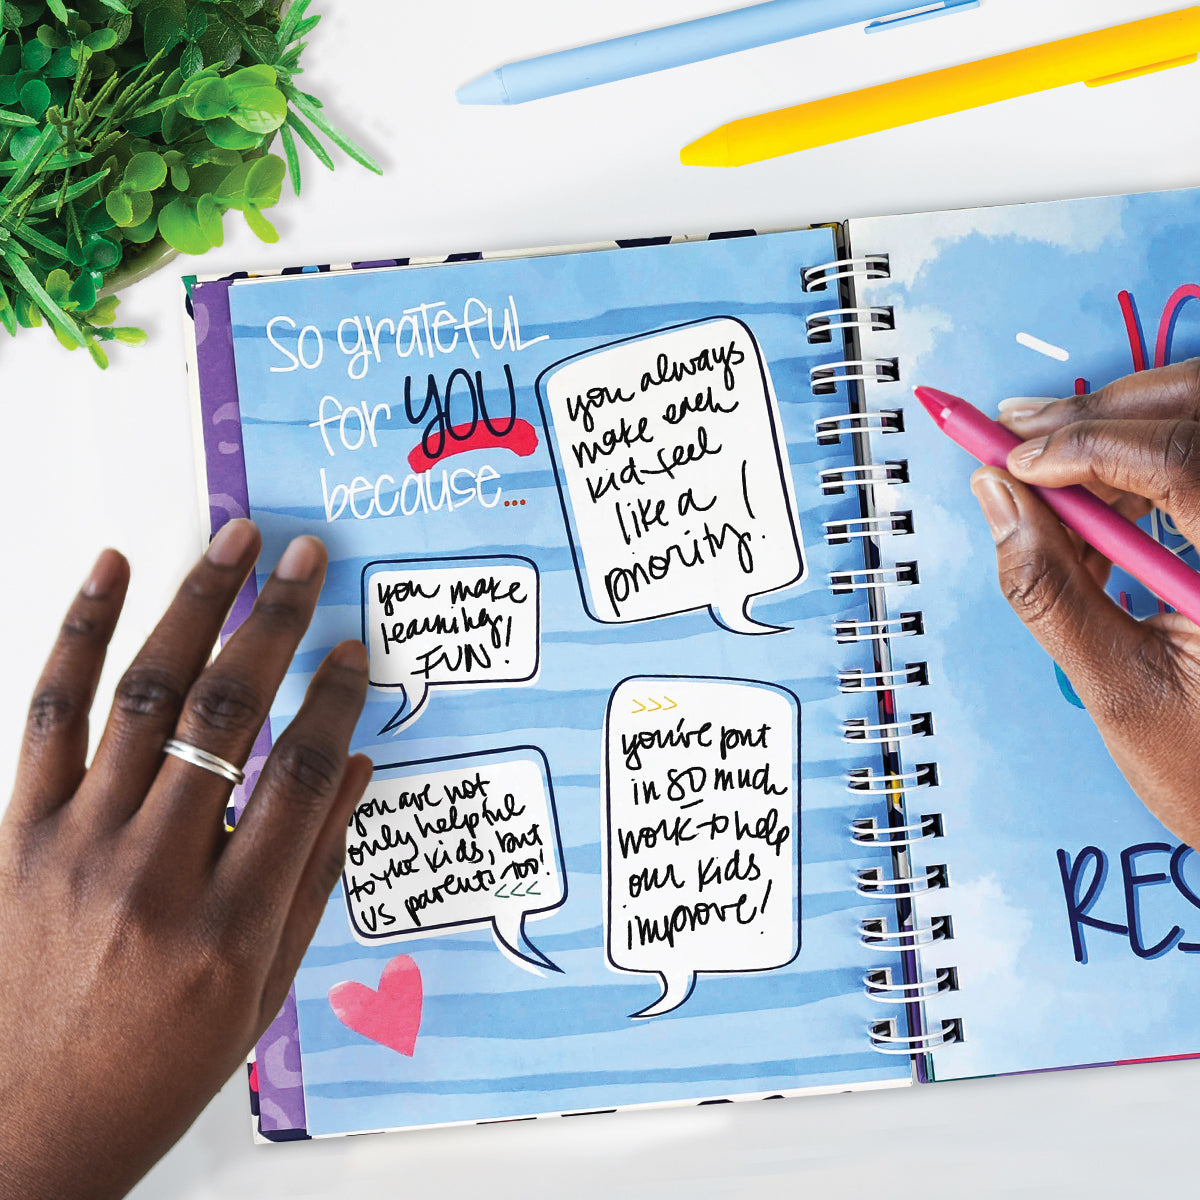 So grateful
for YOU
because...
you always
make each
kid feel
like a
priority!
you make
learning
FUN!
you are not
only helpful
to the kids, but
us parents, too!
<<<
>>>
you've put
in SO much
work to help
our kids
improve!
RES